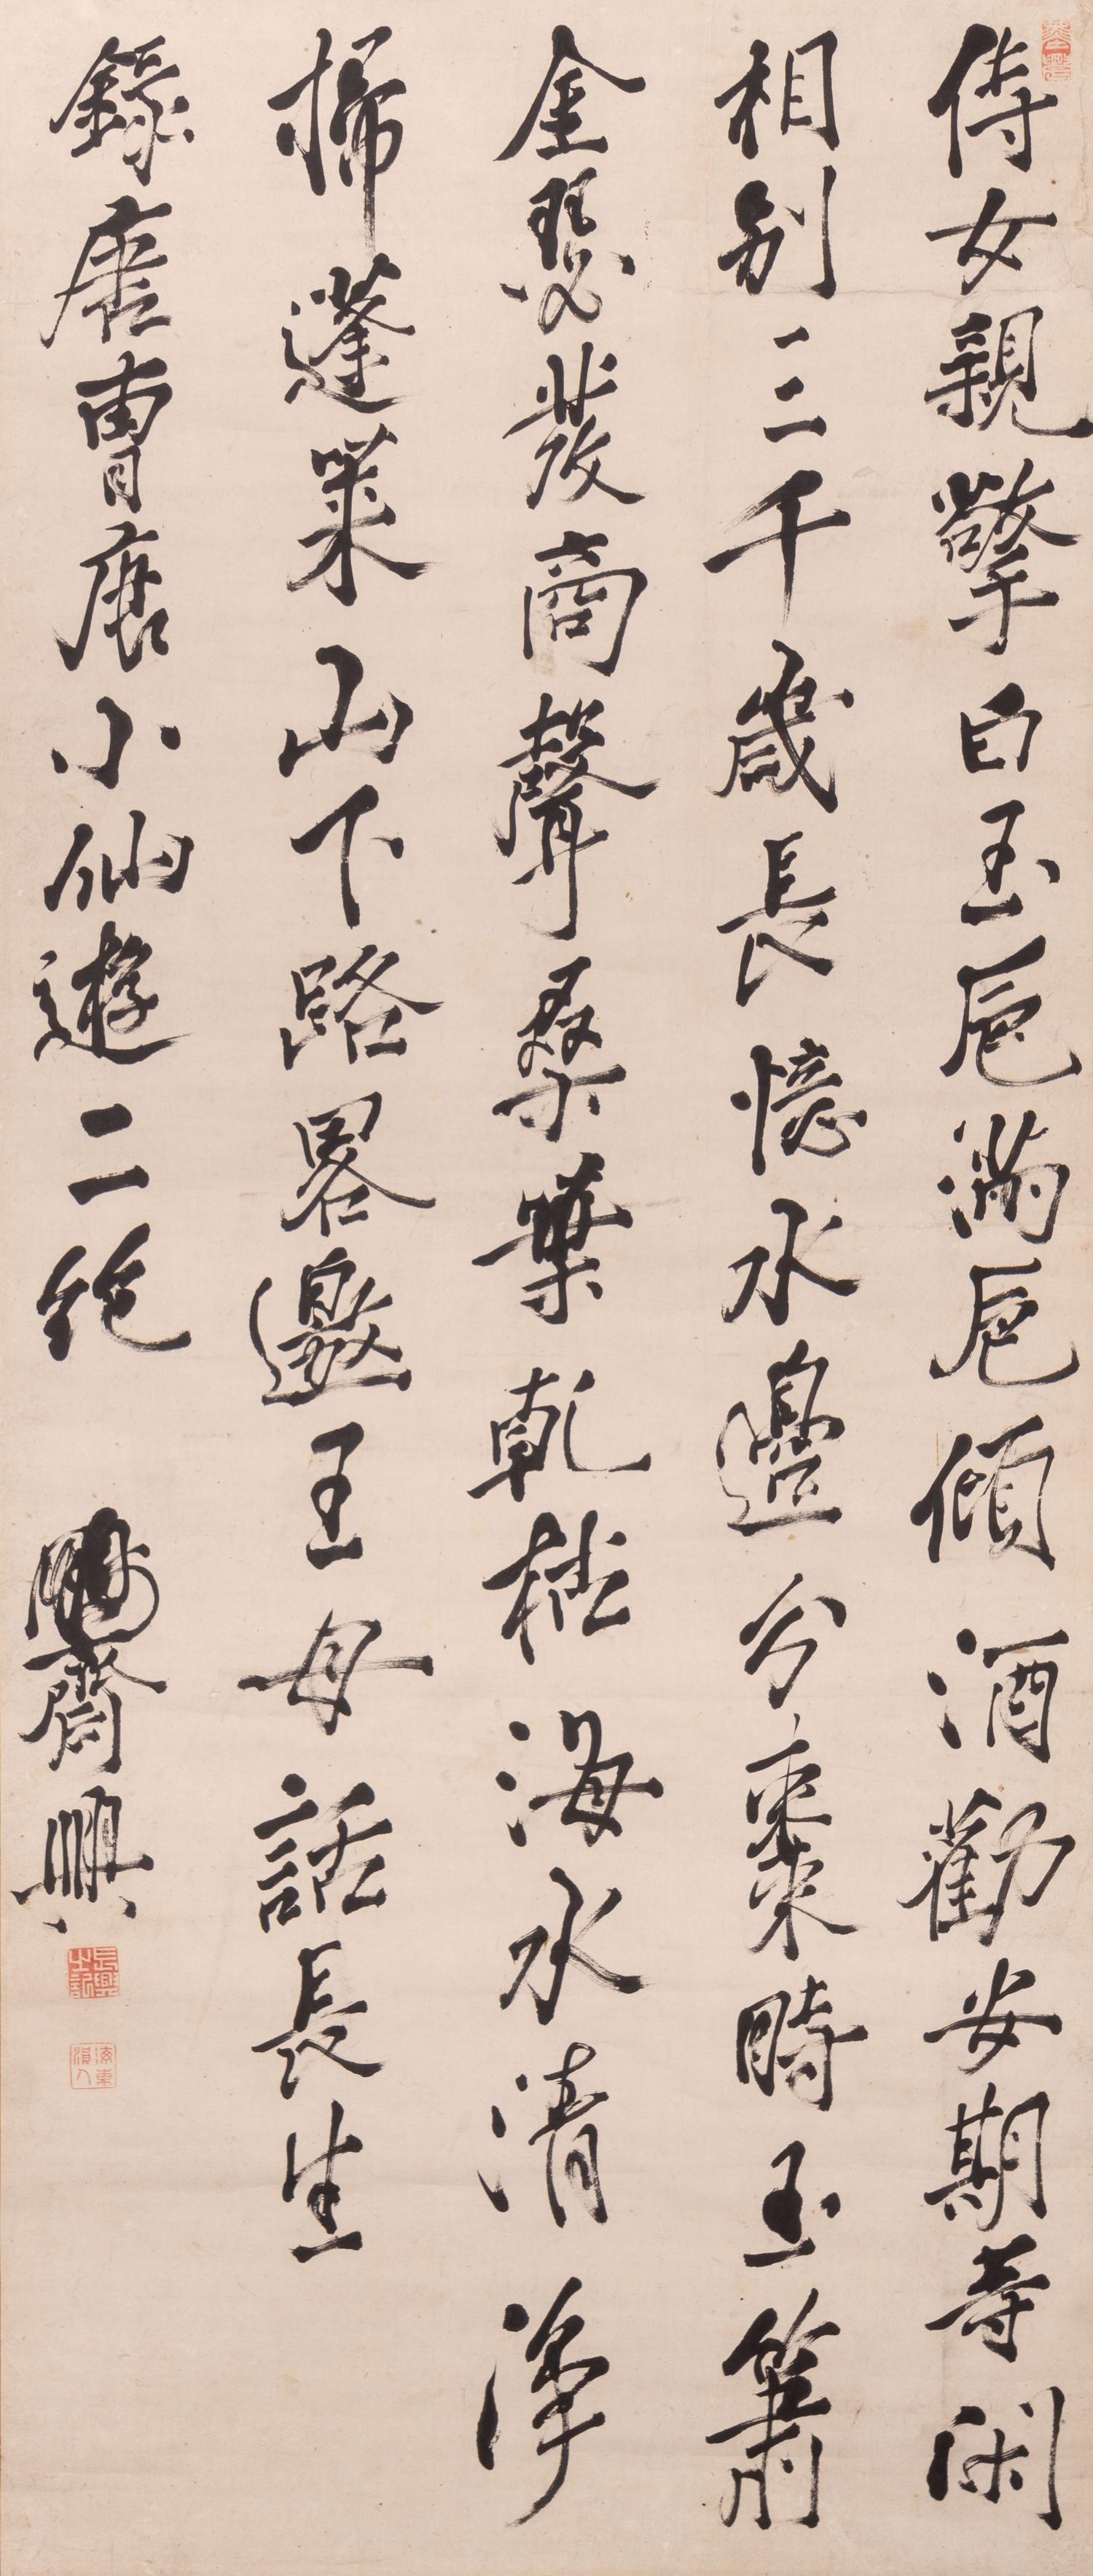 侍女親擎白玉卮滿卮傾酒勸安期等閑
相別三千歲長憶水邊分棗時玉簫
金瑟發商聲桑葉乾枯海水清淨
掃蓬萊山下路畧邀王母話長生
錄唐曹唐小仙遊二絕 鵬齋興
長興之記